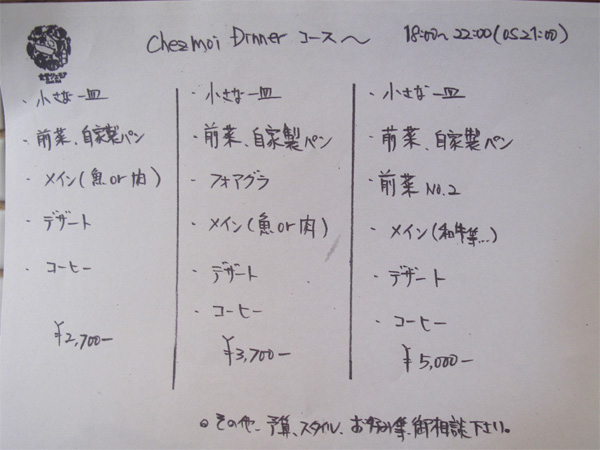 Chez moi Dinner コース〜 18:00〜22:00(OS21:00)
・小さな一皿
・前菜、自家製パン
・メイン(魚or肉)
・デザート
・コーヒー
¥2,700−
・小さな一皿
・前菜、自家製パン
・フォアグラ
・メイン(魚or肉)
・デザート
・コーヒー
¥3,700−
・小さな一皿
・前菜、自家製パン
・前菜 No.2
・メイン(和牛等…)
・デザート
・コーヒー
¥5,000−
◎その他、予算、スタイル、お好み等、御相談下さい。